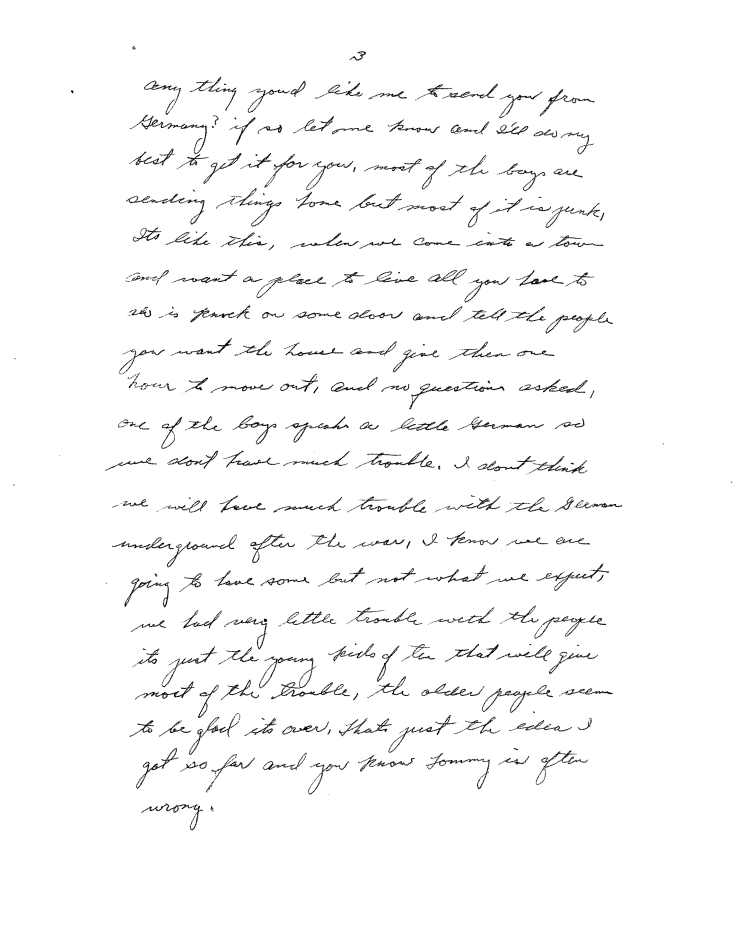 3
any thing youd like me to send you from
Germany? if so let me know and I'll do my
best to get it for you, most of the boys are
sending things home but most of it is junk,
Its like this, when we come into a town
and want a place to live all you have to
do is knock on some door and tell the people
you want the house and give them one
hour to move out, and no questions asked,
one of the boys speaks a little German so
we dont have much trouble. I dont think
we will have much trouble with the German
underground after the war, I know we are
going to have some but not what we expect,
we had very little trouble with the people
its just the young kids of ten that will give
most of the trouble, the older people seem
to be glad its over, thats just the idea I
got so far and you know Tommy is often
wrong.